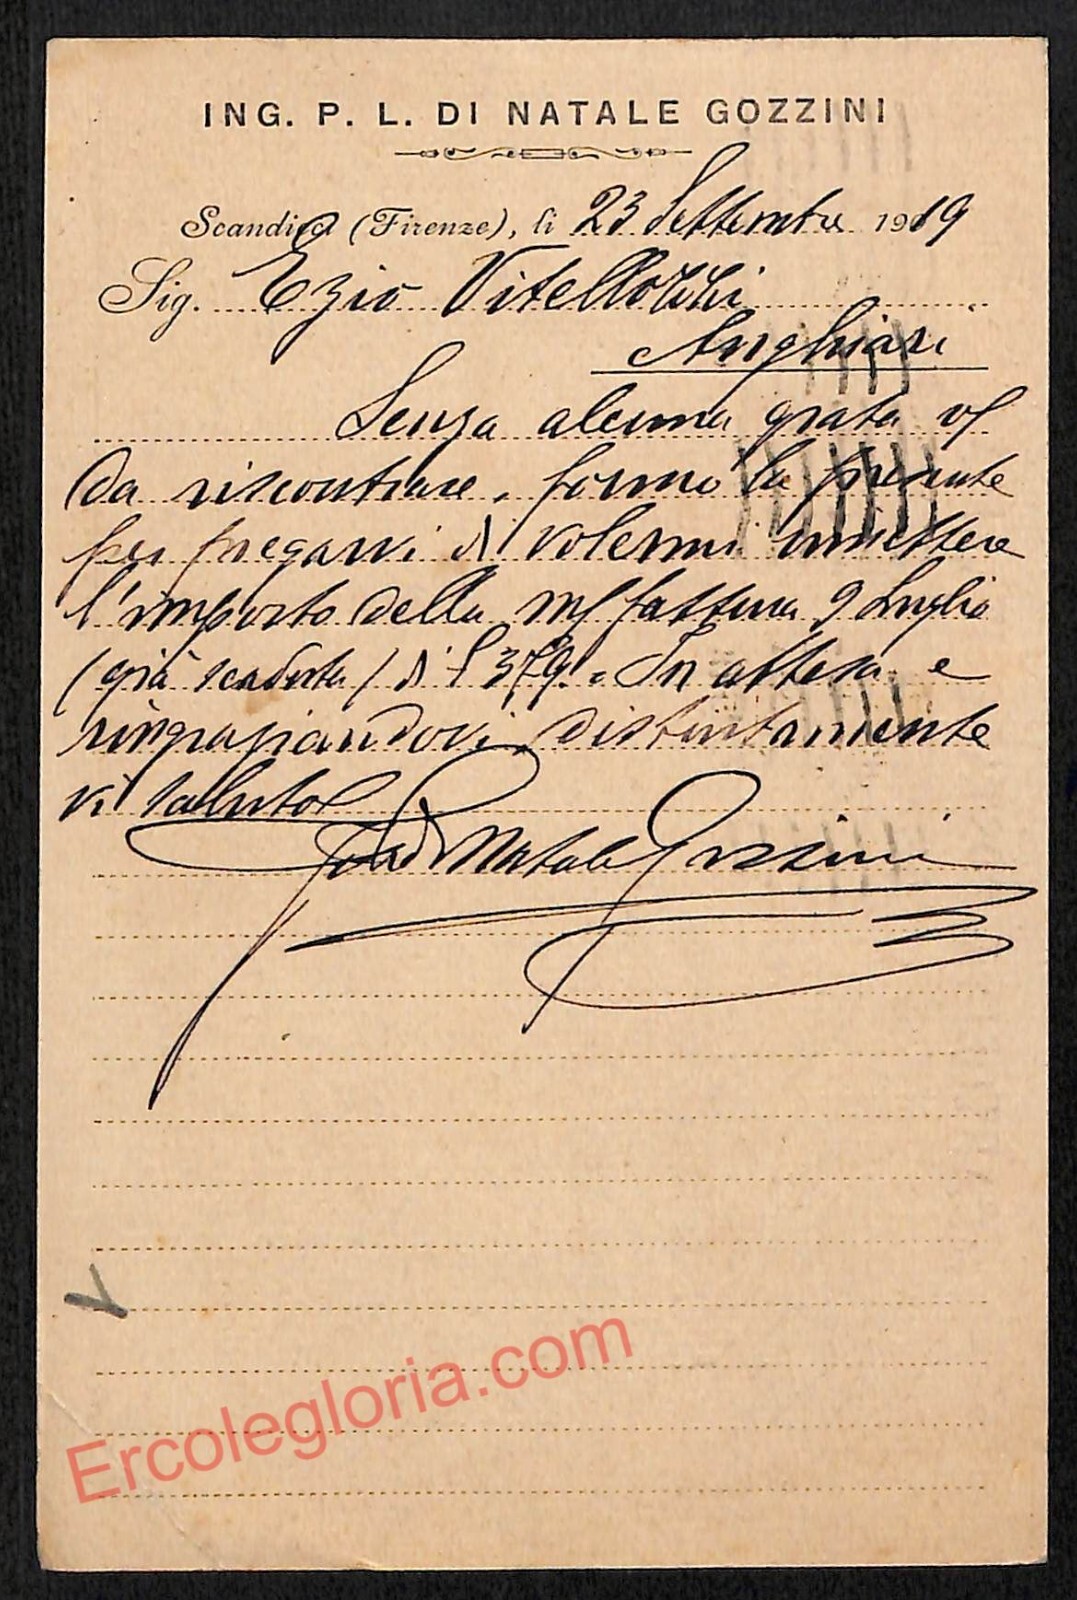 ING. P. L. DI NATALE GOZZINI
Scandicci (Firenze), li 23 Settembre 1919
Sig. Ezio Vitellozzi
Anghiari
Senza alcuna grata vs/
da riscontrare, formo la presente
per pregarvi di volermi rimettere
l'importo della ns/ fattura 9 Luglio
(già scaduta) di £ 379. = In attesa e
ringraziandovi distintamente
vi saluto
Natale Gozzini
Ercolegloria.com